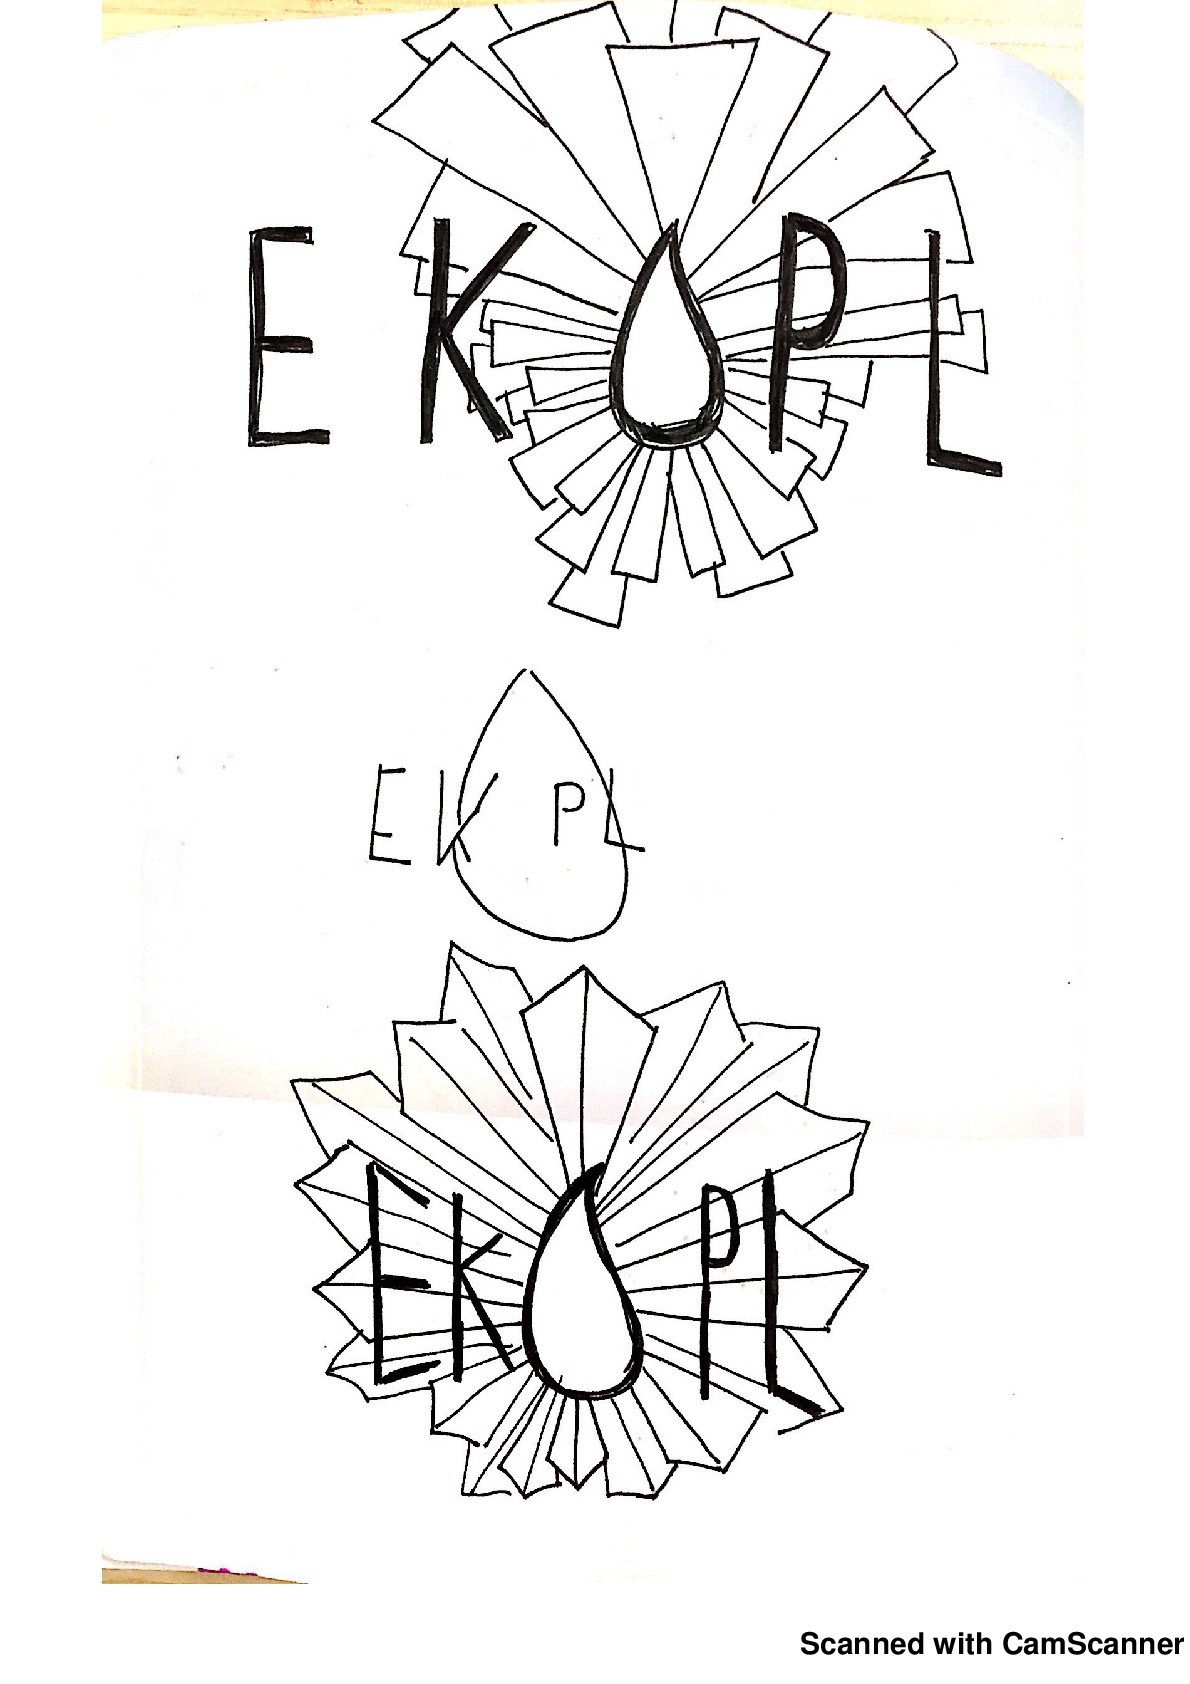 EK PL
EK PL
EK PL
Scanned with CamScanner